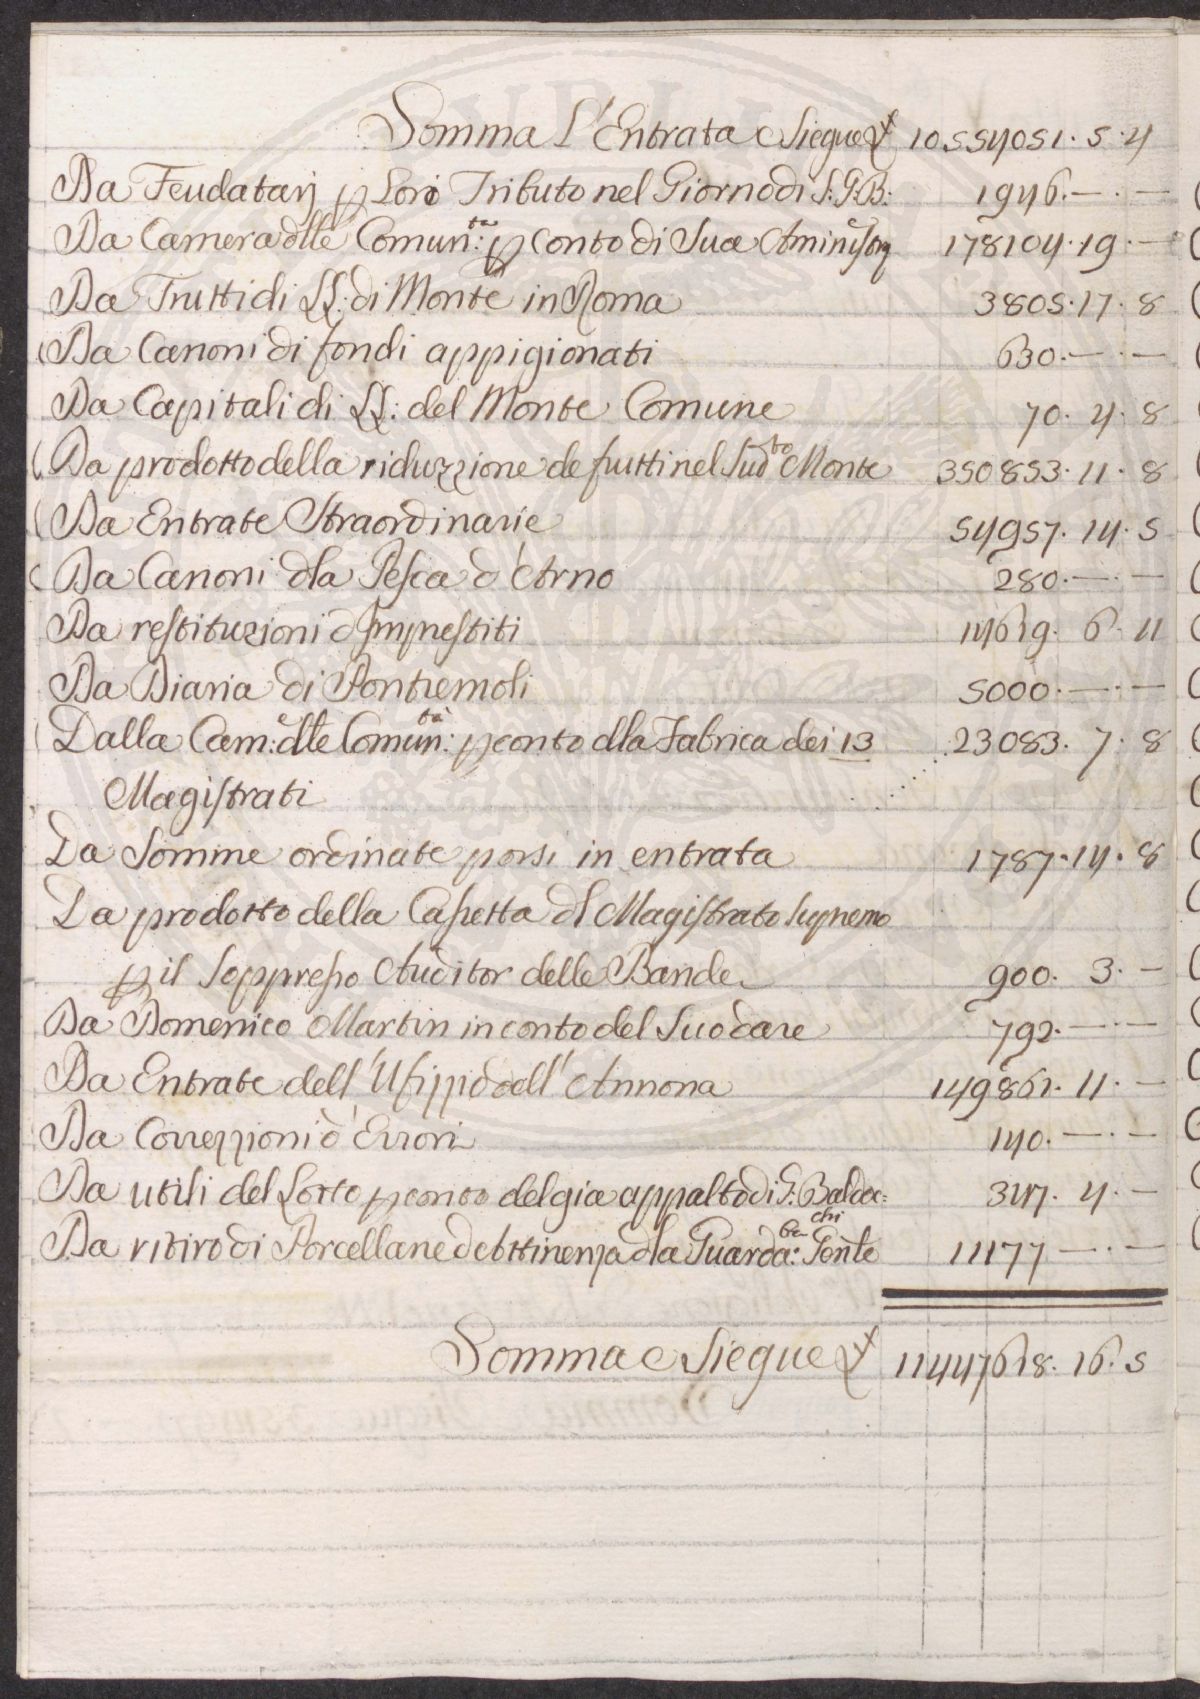 Somma L'Entrata e Siegue 10554051. 5. 4
Da Feudatarj p Loro Tributo nel Giorno di S: G: B: 1946. — . —
Da Camera dlle Comun:ta p conto di Sua Aministrae 178104. 19. —
Da Frutti di LL: di Monte in Roma 3805. 17. 8
Da Canoni di fondi appigionati 630. — . —
Da Capitali di LL: del Monte Comune 70. 4. 8
Da prodotto della riduzzione de frutti nel Sudto Monte 350853. 11. 8
Da Entrate Straordinarie 54957. 14. 5
Da Canoni dla Pesca d'Arno 280. — . —
Da restituzioni d'Imprestiti 14619. 6. 11
Da Diaria di Pontremoli 5000. — . —
Dalla Cam: dlle Comun:tà p conto dlla Fabrica dei 13 23083. 7. 8
Magistrati
Da Somme ordinate porsi in entrata 1787. 14. 8
Da prodotto della Cassetta dl Magistrato Supremo
p il Soppresso Auditor delle Bande 900. 3. —
Da Domenico Martin in conto del Suo dare 792. — . —
Da Entrate dell'Ufizzio dell'Annona 149861. 11. —
Da Correzzioni d'Errori 140. — . —
Da utili del Lotto p conto del gia appalto di G: Baldac=
chi 347. 4. —
Da ritiro di Porcellane d'attinenza dla Guarda:ba Gente 11177 — . —
Somma e Siegue 11447618. 16. 5